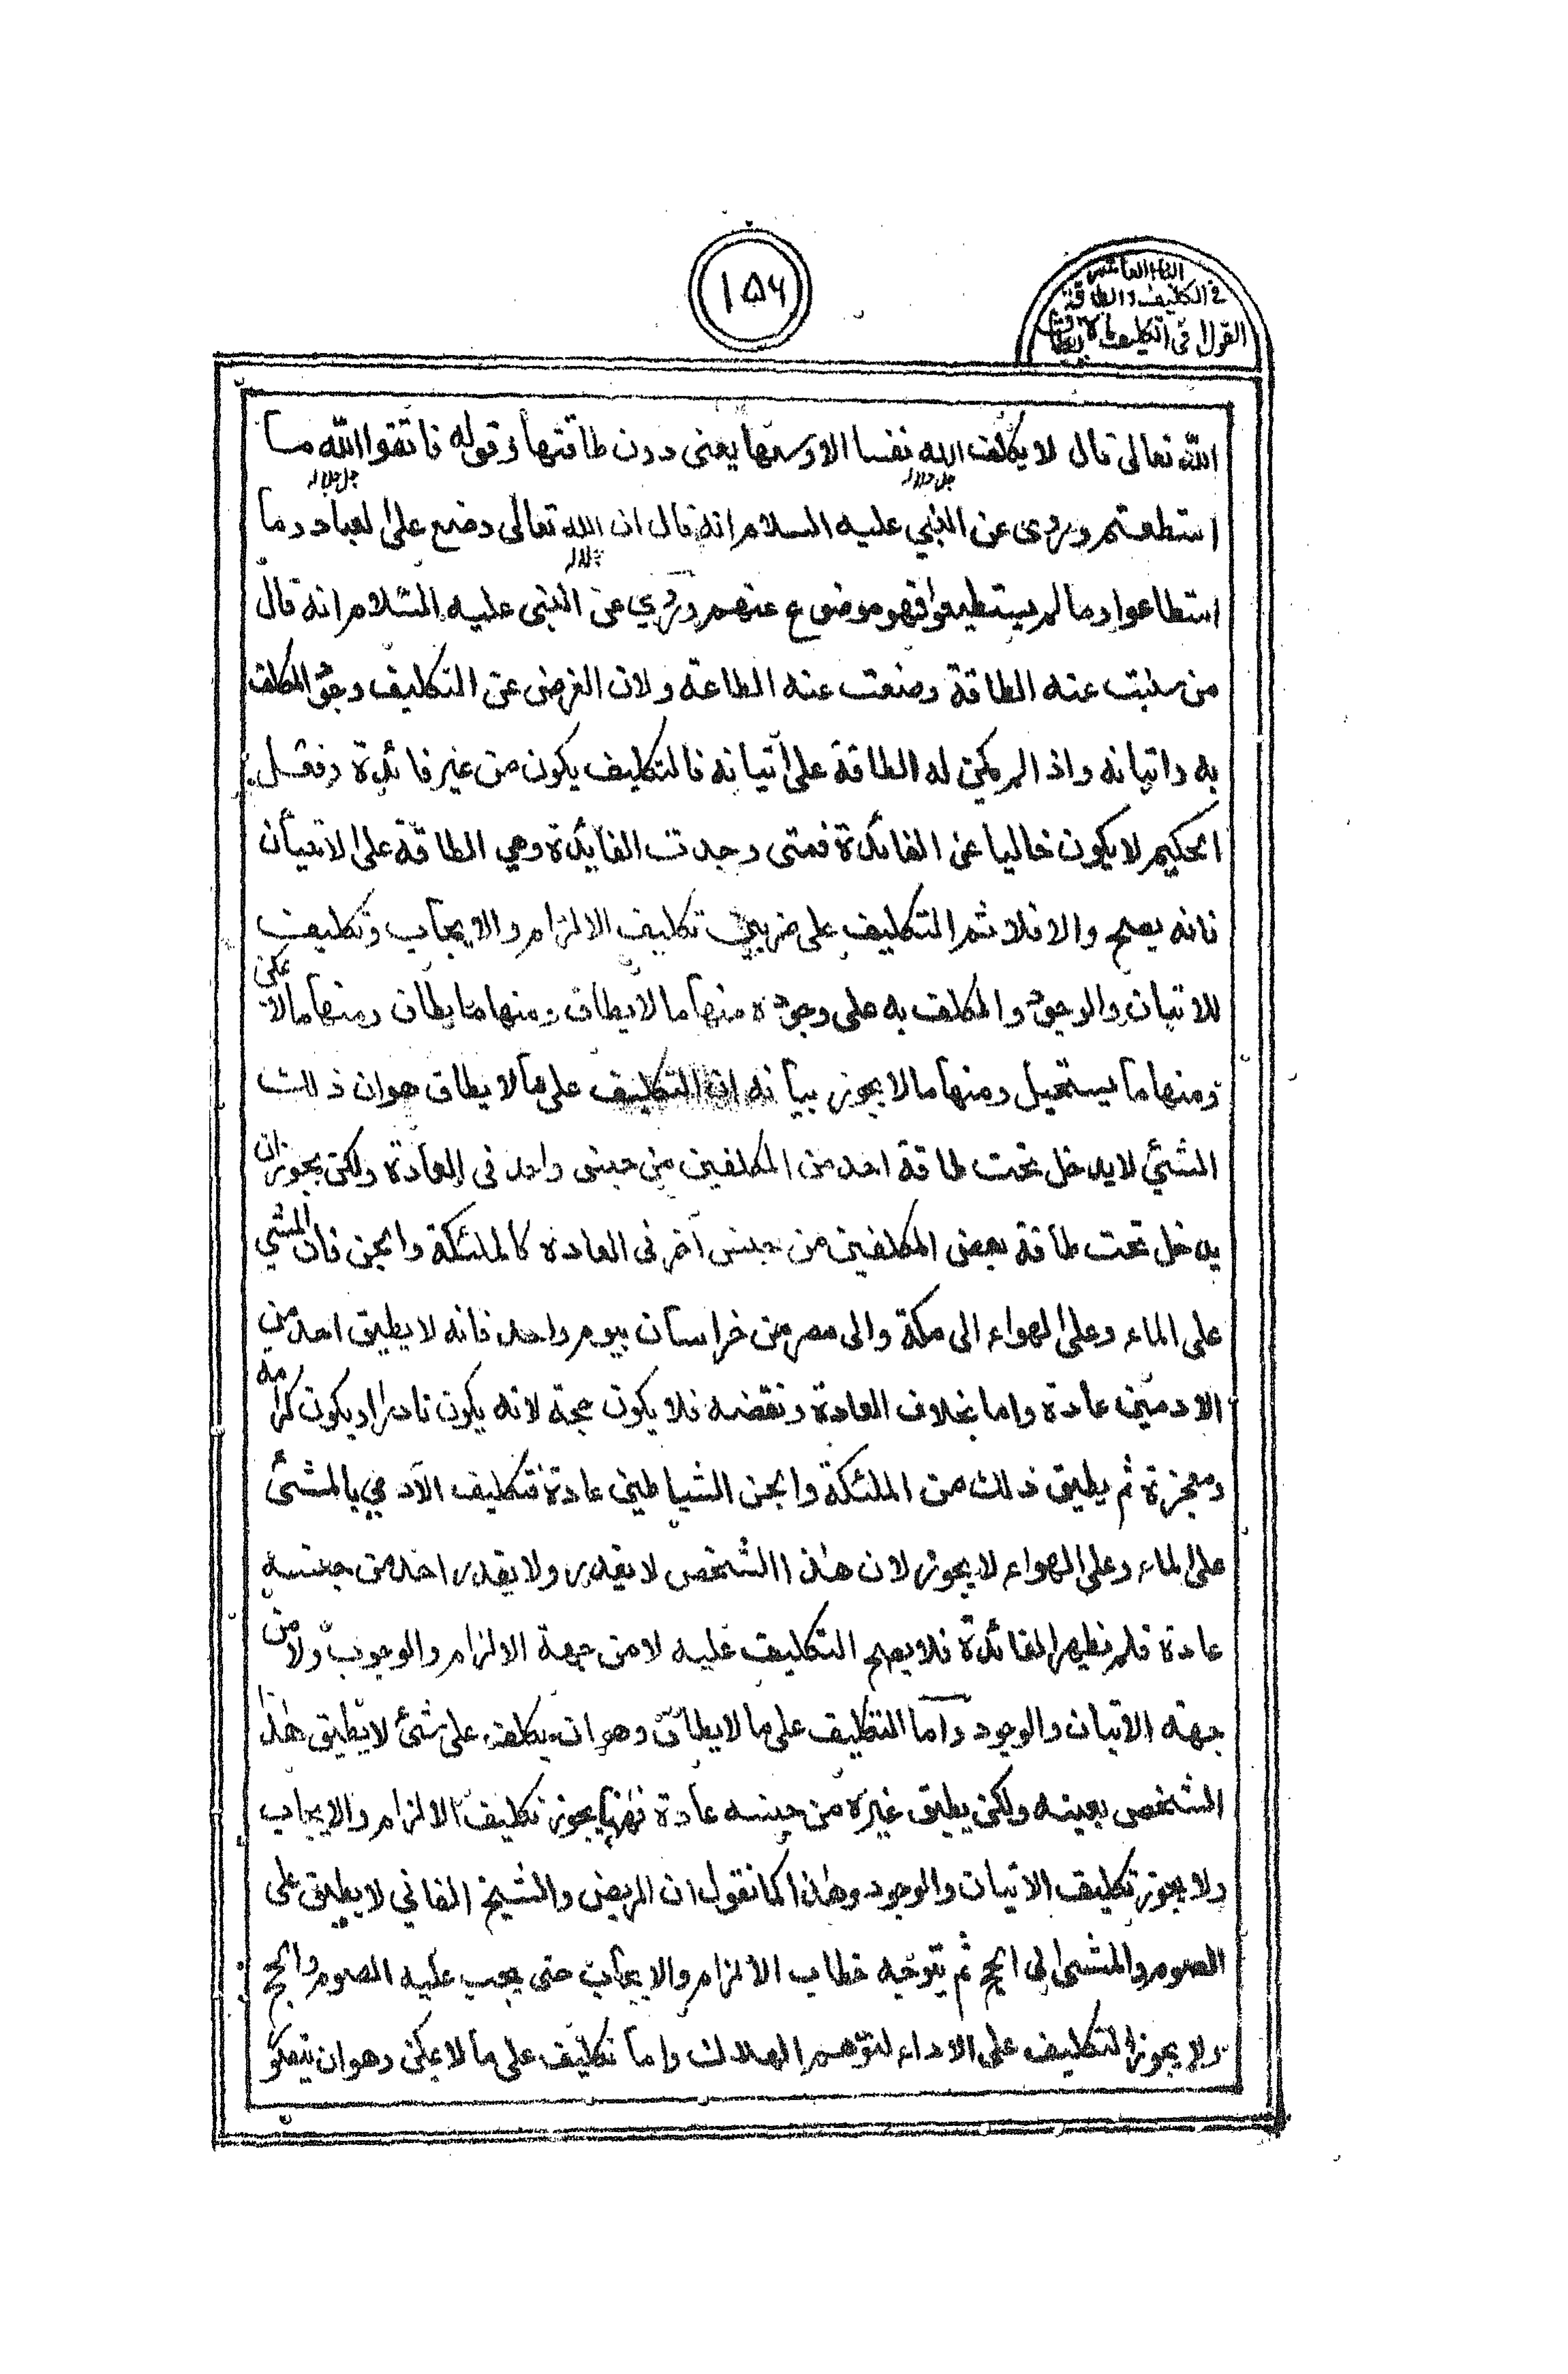 ١٥٦
الباب العاشر
في التكليف والطاقة
القول في التكليف بما لا يطاق
الله تعالى قال لا يكلف الله نفسا الا وسعها يعنى دون طاقتها وقوله فاتقوا الله ما
جل جلاله جل جلاله
استطعتم وروى عن النبي عليه السلام انه قال ان الله تعالى وضع على العباد وما
جل جلاله
استطاعوا وما لم يستطيعوا فهو موضوع عنهم وروي عن النبى عليه السلام انه قال
من سلبت عنه الطاقة وضعت عنه الطاعة ولان الغرض عن التكليف وجود المكلف
به واتيانه واذا لم يكن له الطاقة على اتيانه فالتكليف يكون من غير فائدة وفعل
الحكيم لا يكون خاليا عن الفائدة فمتى وجدت الفائدة وهي الطاقة على الاتيان
فانه يصح والا فلا ثم التكليف على ضربين تكليف الالزام والايجاب وتكليف
للاتيان والوجود والمكلف به على وجوه منها ما لا يطاق ومنها ما يطاق ومنها ما لا يمكن
ومنها ما يستحيل ومنها ما لا يجوز بيانه ان التكليف على ما لا يطاق هو ان ذلك
الشئي لا يدخل تحت طاقة احد من المكلفين من جنس واحد فى العادة ولكن يجوز ان
يدخل تحت طاقة بعض المكلفين من جنس آخر فى العادة كالملئكة والجن فان المشي
على الماء وعلى الهواء الى مكة والى مصر من خراسان بيوم واحد فانه لا يطيق احد من
الادميّن عادة واما بخلاف العادة ونقضه فلا يكون حجة لانه يكون نادرا ويكون كرامه
ومعجزة ثم يطيق ذلك من الملئكة والجن الشياطين عادة فتكليف الآدمي بالمشئ
على الماء وعلى الهواء لا يجوز لان هذا الشخص لا يقدر ولا يقدر احد من جنسه
عادة فلم تظهر الفائدة فلا يصح التكليف عليه لا من جهة الالزام والوجوب ولا من
جهة الاتيان والوجود واما التكليف على ما لا يطاق وهو ان يكلف على شئ لا يطيق هذا
الشخص بعينه ولكن يطيق غيره من جنسه عادة فههنا يجوز تكليف الالزام والايجاب
ولا يجوز تكليف الاتيان والوجود وهذا كما نقول ان المريض والشيخ الفاني لا يطيق على
الصوم والمشى الى الحج ثم يتوجه خطاب الالزام والايجاب حتى يجب عليه الصوم والحج
ولا يجوز التكليف على الاداء لتوهم الهلاك واما تكليف على ما لا يمكن وهو ان